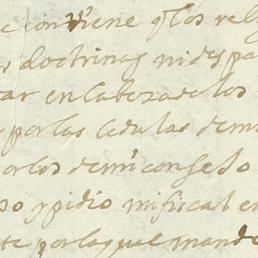 e conviene q̃ los rel
s doctrinas ni des pa
ar en cabeza de los
por las cedulas de mi
or los de mi consejo
so y pidio mi fiscal en
te por la qual mando